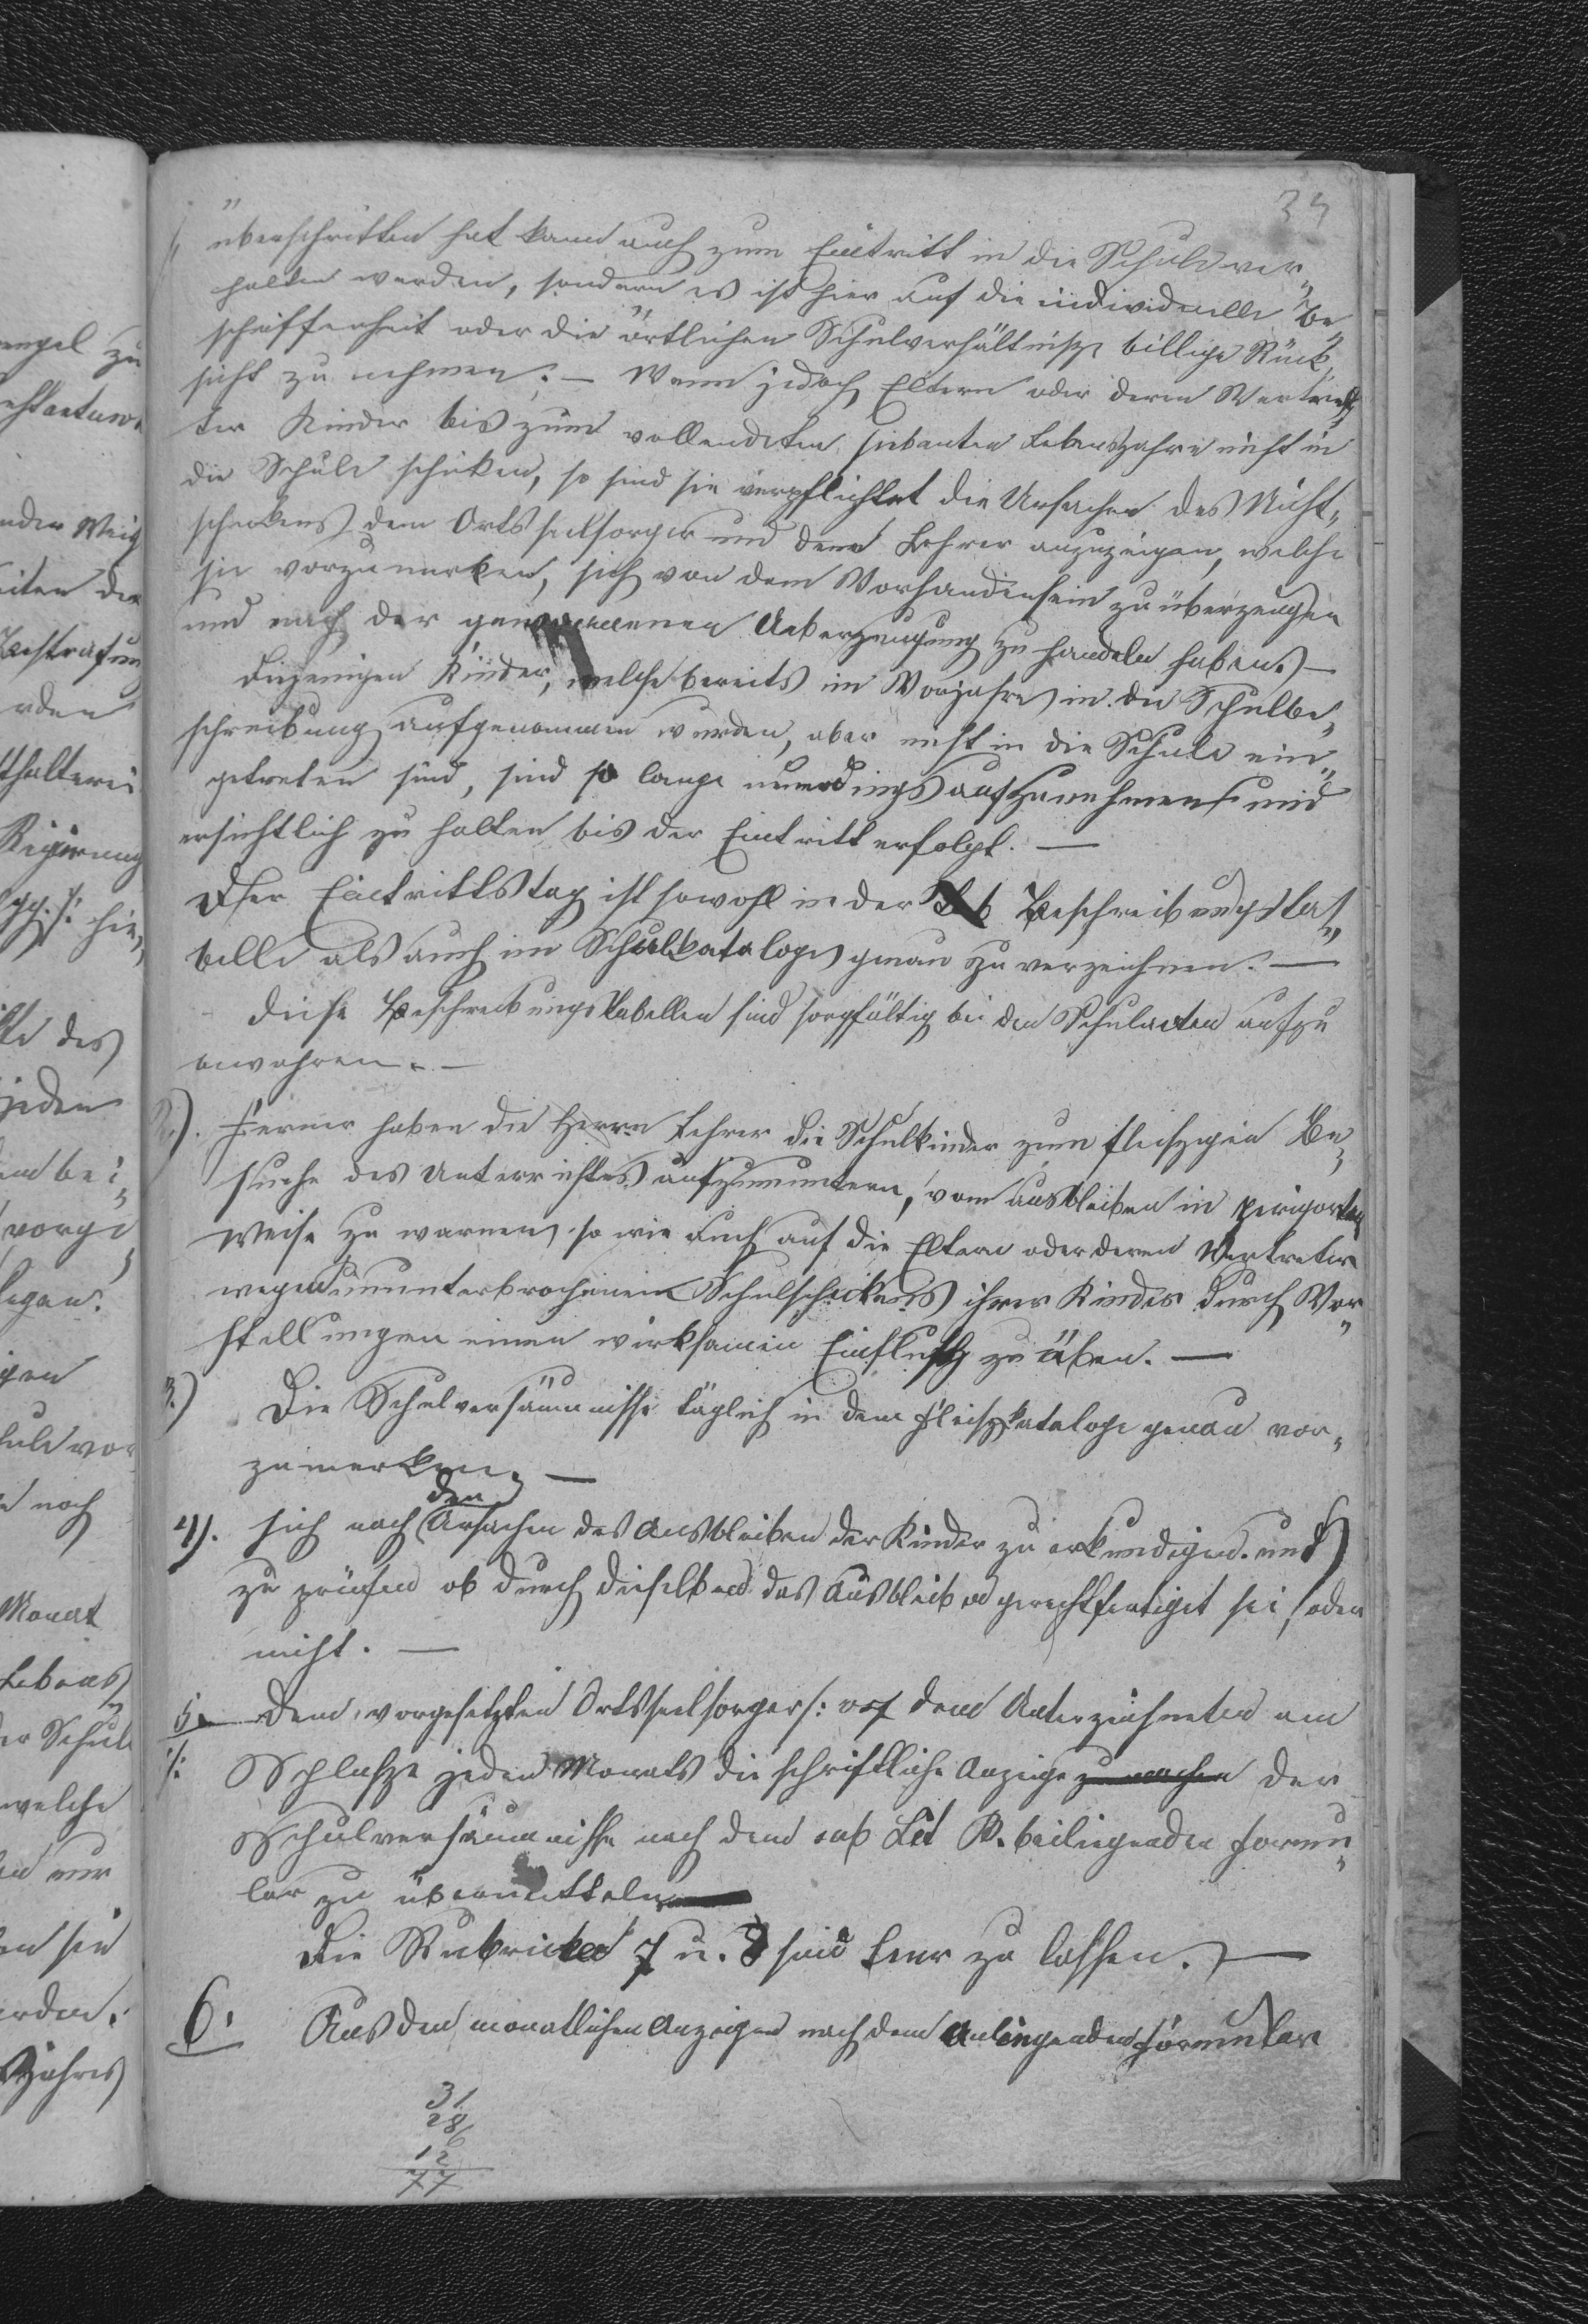 34
überschritten hat kann auch zum Eintritt in die Schule ver„
halten werden, sondern es ist hier auf die individuelle Be„
schaffenheit oder die örtlichen Schulverhältnisse billige Rück„
sicht zu nehmen. — Wenn jedoch Eltern oder deren Vertre„
ter Kinder bis zum vollendeten siebenten Lebensjahre nicht in
die Schule schicken, so sind sie verpflichtet die Ursachen des Nicht„
schickens dem Ortsseelsorger und dem Lehrer anzuzeigen, welche
sie vorzumerken, sich von dem Vorhandensein zu überzeugen
und nach der gewonnenen Ueberzeugung zu handeln haben. —
Diejenigen Kinder, welche bereits im Vorjahre in die Schulbe„
schreibung aufgenommen wurden, aber nicht in die Schule ein„
getreten sind, sind so lange neuerdings aufzunehmen und
ersichtlich zu halten bis der Eintritt erfolgt. —
Der Eintrittstag ist sowohl in der Beschreibungsta„
belle als auch im Schulkataloge genau zu verzeichnen. —
Diese Beschreibungstabellen sind sorgfältig bei den Schulacten aufzu
bewahren. —
2.). Ferner haben die Herrn Lehrer die Schulkinder zum fleiszigen Be„
suche des Unterrichtes aufzumuntern, vom Ausbleiben in
Weise zu warnen, so wie auch auf die Eltern oder deren Vertreter
wegen ununterbrochenen Schulschickens ihrer Kinder durch Vor„
stellungen einen wirksamen Einflusz zu üben. —
3.) Die Schulversäumnisse täglich in dem Fleiszkataloge genau vor„
zumerken. —
4). sich nach den Ursachen des Ausbleiben der Kinder zu erkundigen. und
zu prüfen ob durch dieselben das Ausbleiben gerechtfertiget sei, oder
nicht. —
5. Dem vorgesetzten Ortsseelsorger /: dem Unterzeichneten am
:/ Schlusze jeden Monats die schriftliche Anzeige zu machen der
Schulversäumnisse nach dem sub Lit B. beiliegenden Formu„
lar zu übermitteln. —
Die Rubricken 7 u. 8 sind leer zu lassen. —
6. Aus den monatlichen Anzeigen nach dem anliegenden Formulare
31
28
6
12
77